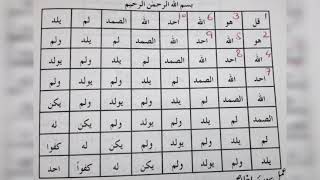 بسم الله الرحمن الرحيم
1 قل 3 هو 6 الله احد الله الصمد لم يلد
2 هو 5 الله 9 احد الله الصمد لم يلد ولم
4 الله 8 احد الله الصمد لم يلد ولم يولد
7 احد الله الصمد لم يلد ولم يولد ولم
الله الصمد لم يلد ولم يولد ولم يكن
الصمد لم يلد ولم يولد ولم يكن له
لم يلد ولم يولد ولم يكن له كفوا
يلد ولم يولد ولم يكن له كفواً احد
عمل